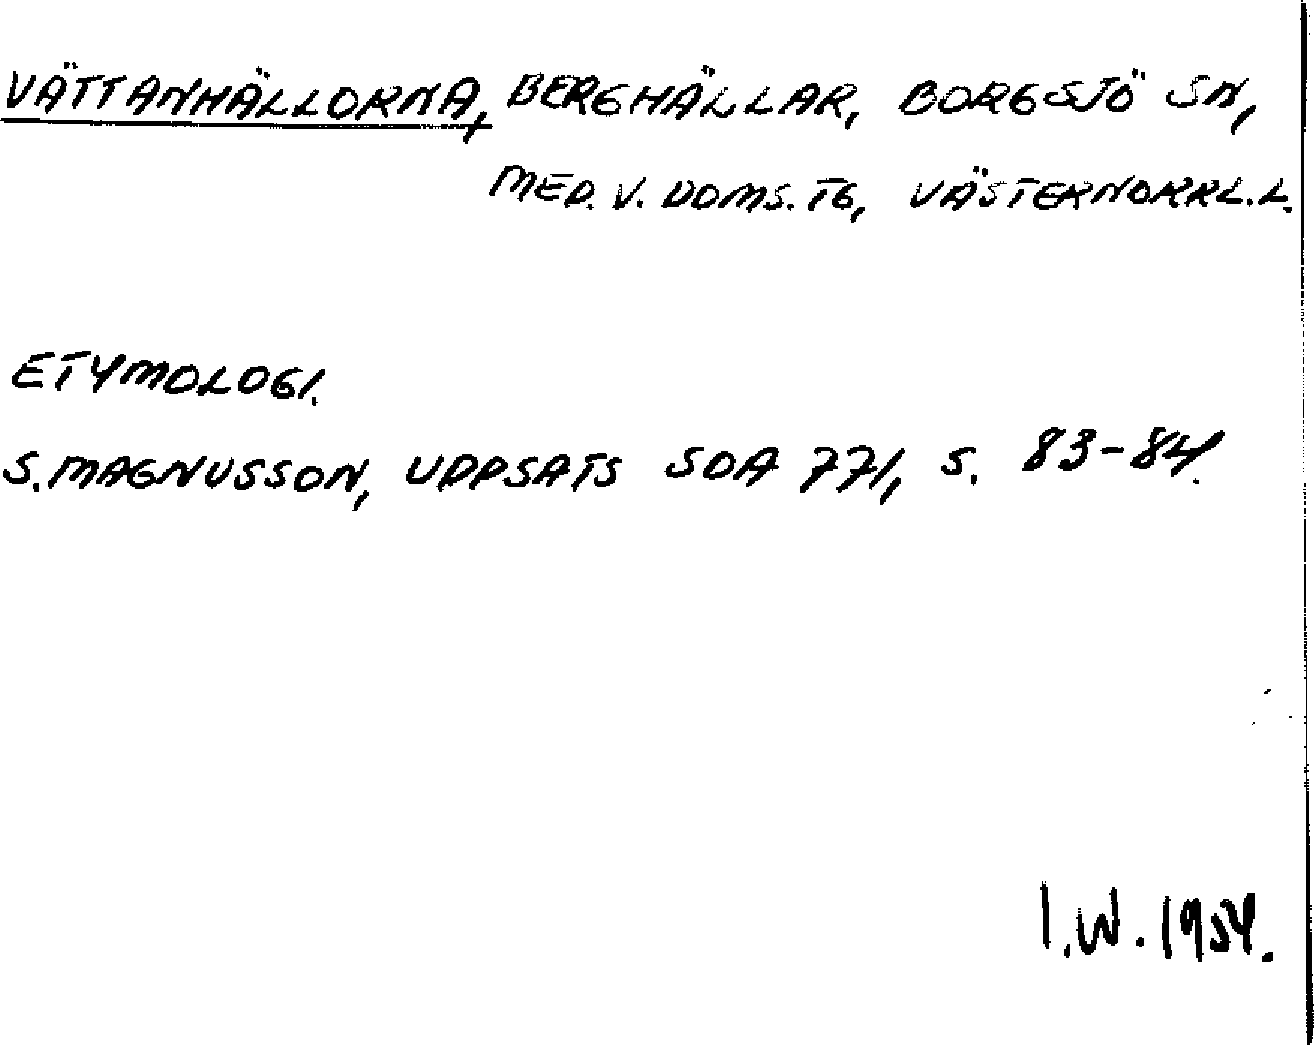 VÄTTANHÄLLORNA, BERGHÄLLAR, BORGSJÖ SN,
MED. V. DOMS. TG, VÄSTERNORRL. L.
ETYMOLOGI.
S. MAGNUSSON, UPPSATS SOA 771, S. 83-84.
I. W. 1954.